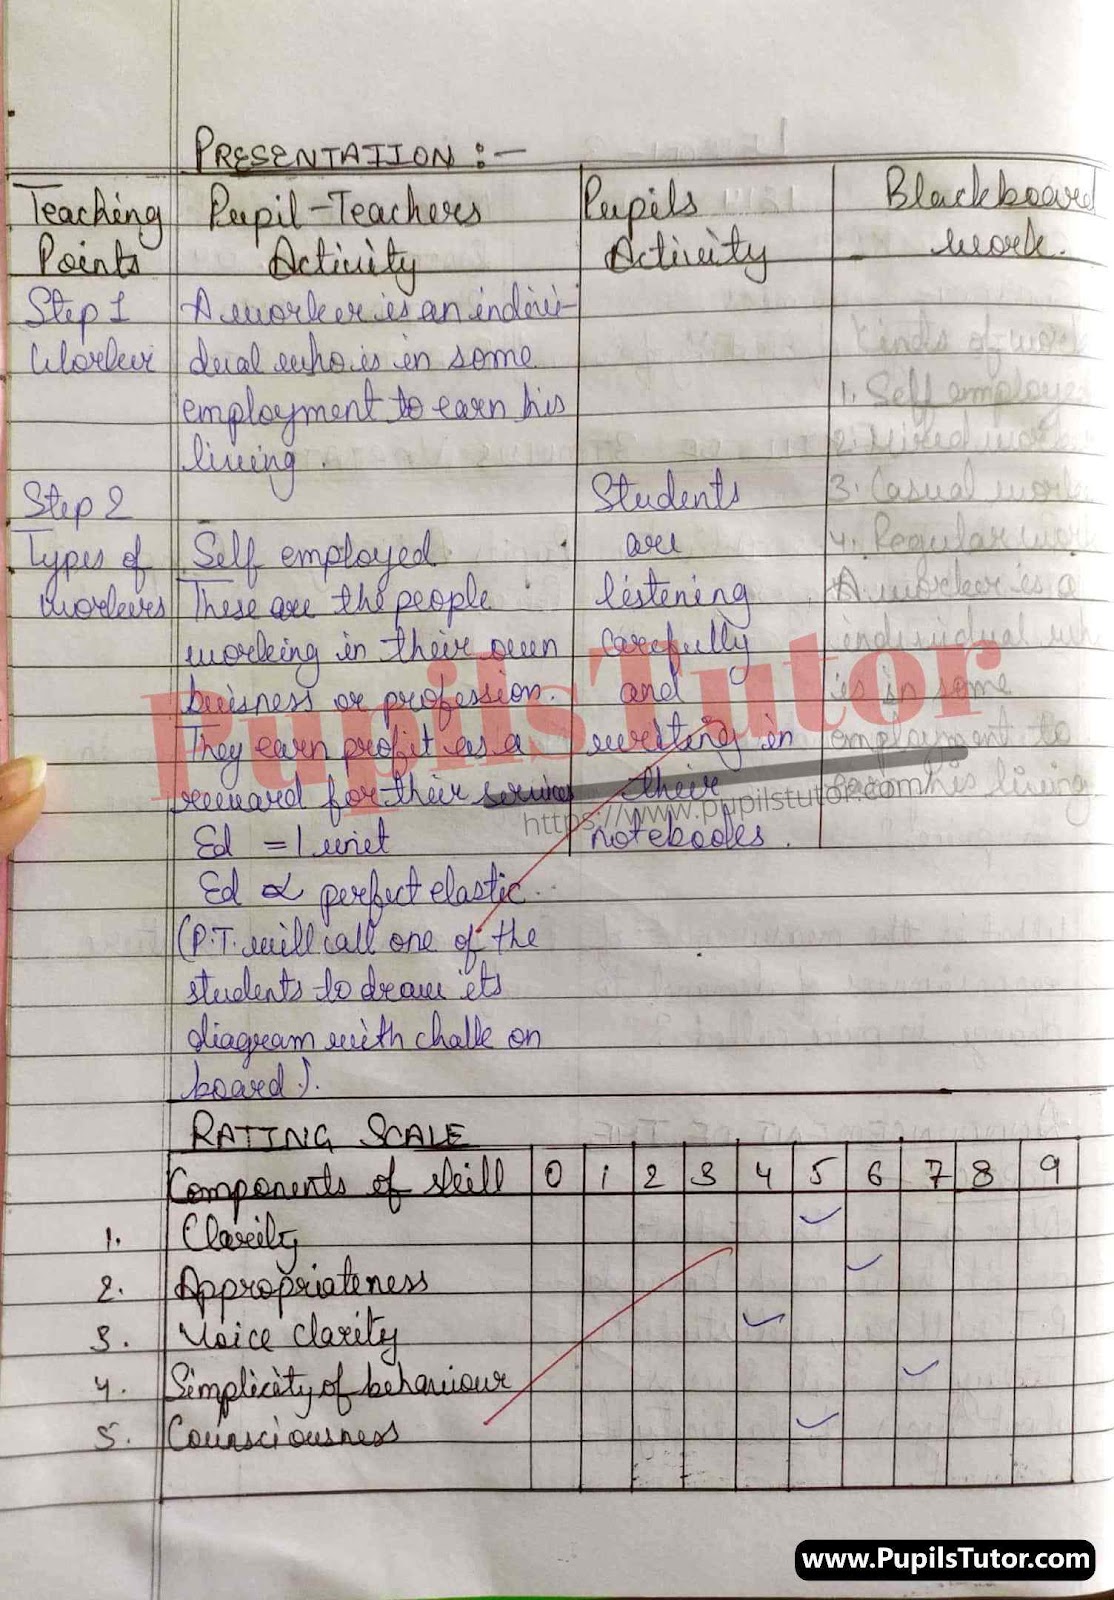 PRESENTATION :-
Teaching Points
Pupil-Teachers Activity
Pupils Activity
Blackboard work.
Step 1
Worker
A worker is an indivi-
dual who is in some
employment to earn his
living.
Step 2
Types of
workers
Self employed
These are the people
working in their own
buisness or profession.
They earn profit as a
reward for their services
Ed = 1 unit
Ed α perfect elastic.
(P.T. will call one of the
students to draw its
diagram with chalk on
board).
Students
are
listening
carefully
and
writing in
their
notebooks.
Kinds of work
1. Self employe
2. Hired work
3. Casual work
4. Regular work
A worker is a
individual wh
is in some
employment to
earn his living
PupilsTutor
https://www.pupilstutor.com
RATING SCALE
Components of skill 0 1 2 3 4 5 6 7 8 9
1. Clarity
2. Appropriateness
3. Voice clarity
4. Simplicity of behaviour
5. Counsciousness
www.PupilsTutor.com